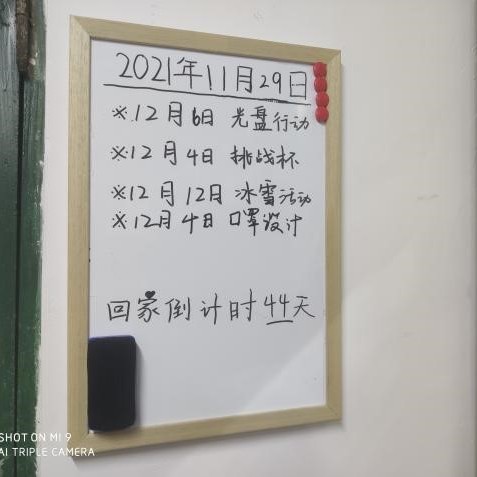 2021年11月29日
※12月6日 光盘行动
※12月4日 挑战杯
※12月12日 冰雪活动
※12月4日 口罩设计
回家倒计时44天
SHOT ON MI 9
AI TRIPLE CAMERA